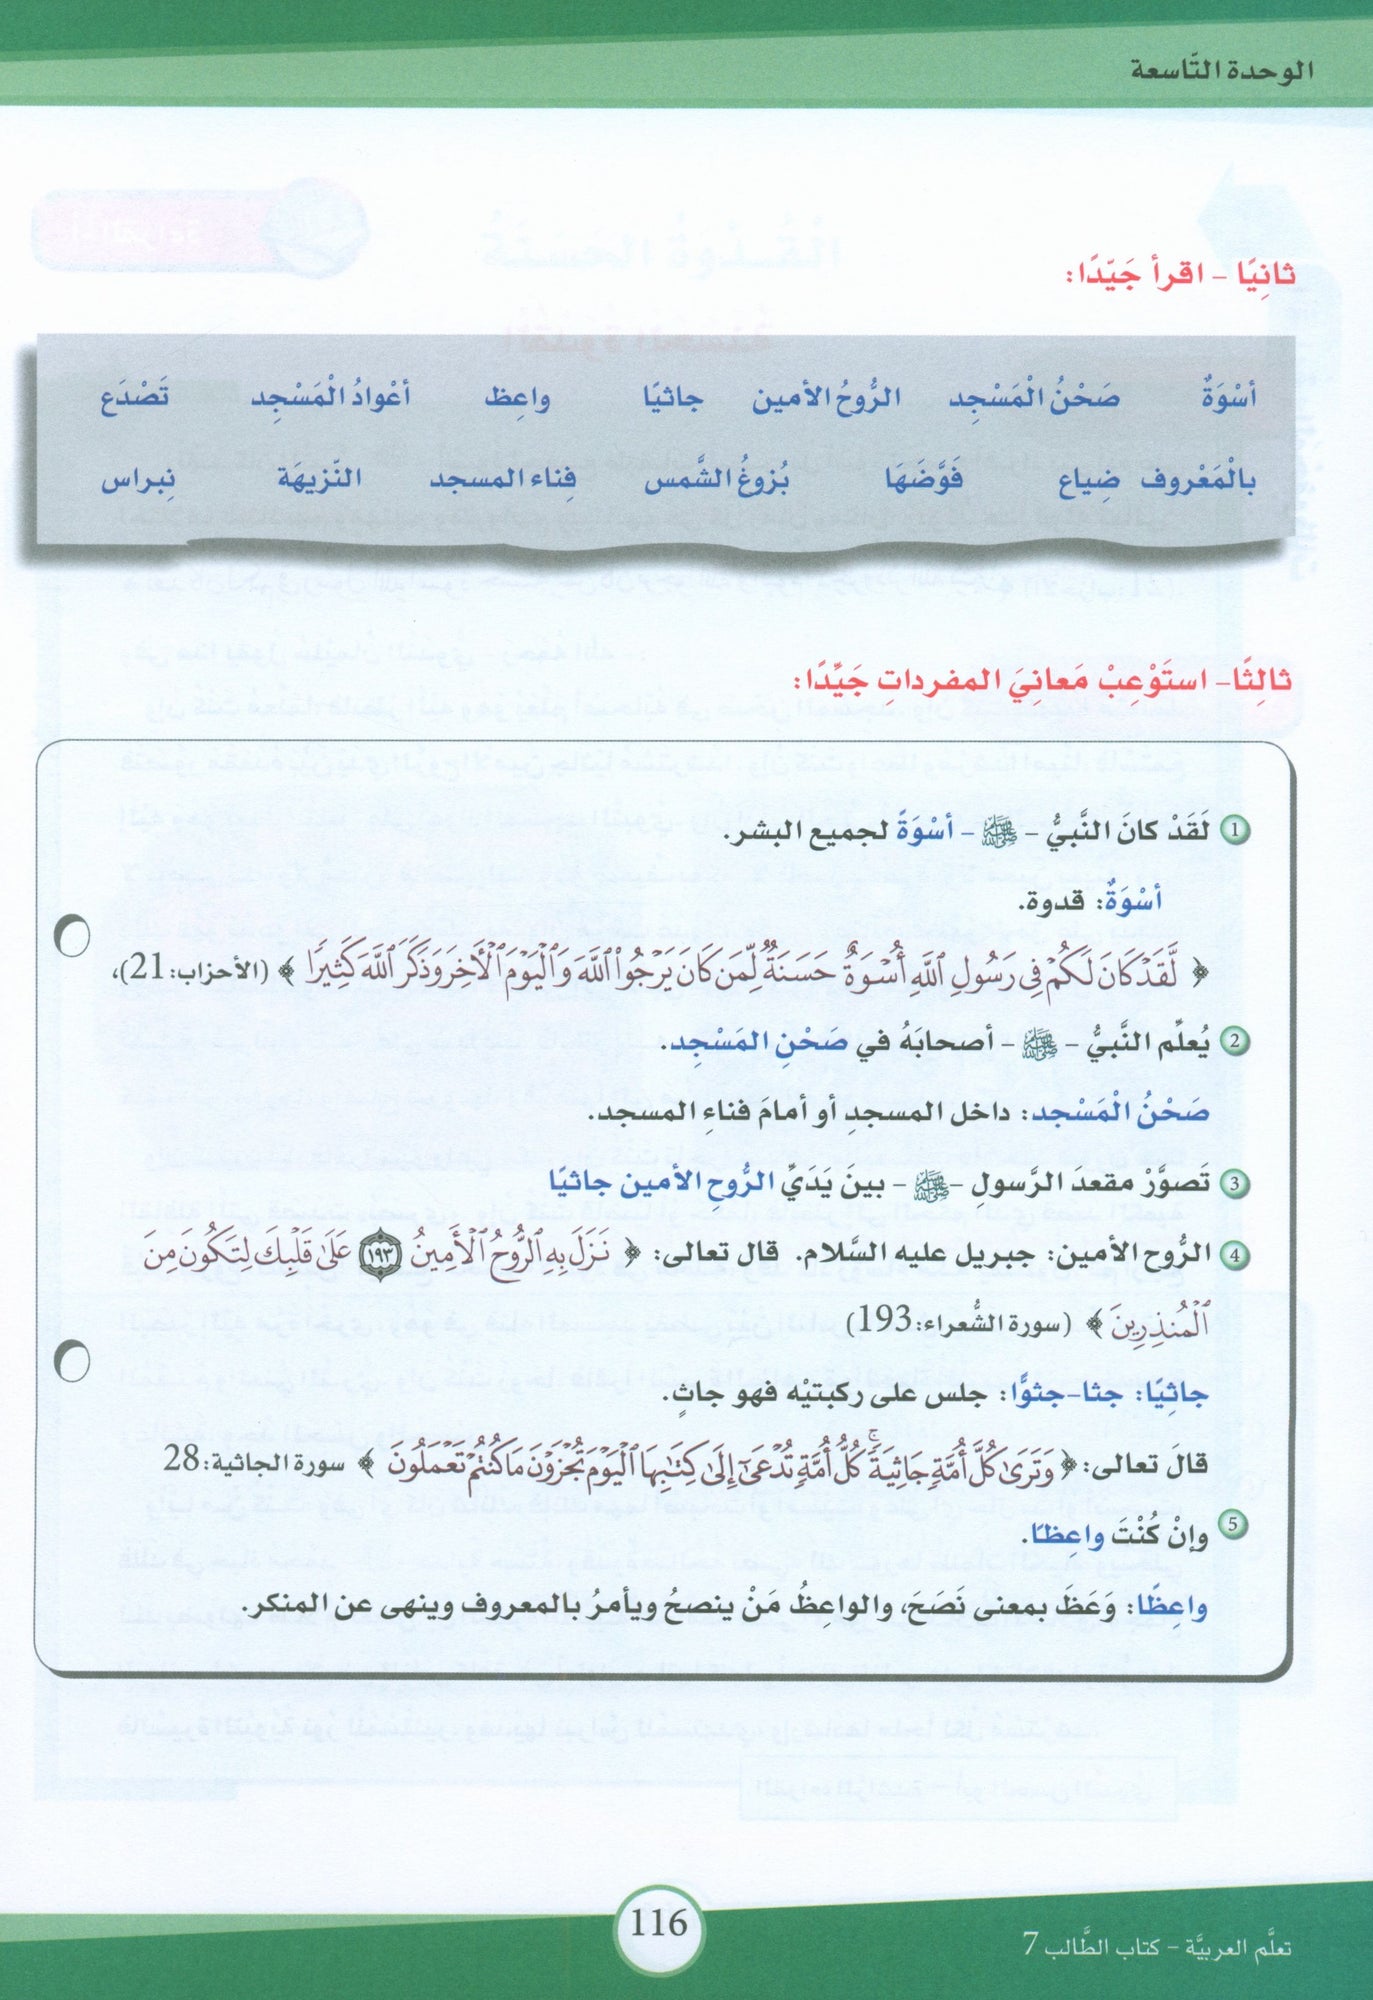 الوحدة التّاسعة
ثانِيًا - اقرأ جَيّدًا:
أسْوَةٌ صَحْنُ الْمَسْجِد الرُّوحُ الأمين جاثيًا واعِظ أعْوادُ الْمَسْجِد تَصْدَع
بالْمَعْروف ضِياع فَوَّضَهَا بُزوغُ الشَّمس فِناء المسجد النَّزيهَة نِبراس
ثالِثًا- استَوْعِبْ مَعانيَ المفرداتِ جَيِّدًا:
1 لَقَدْ كانَ النَّبيُّ - ﷺ - أسْوَةً لجميع البشر.
أسْوَةٌ: قدوة.
﴿ لَّقَدْ كَانَ لَكُمْ فِي رَسُولِ ٱللَّهِ أُسْوَةٌ حَسَنَةٌ لِّمَن كَانَ يَرْجُوا۟ ٱللَّهَ وَٱلْيَوْمَ ٱلْأَخِرَ وَذَكَرَ ٱللَّهَ كَثِيرًا ﴾ (الأحزاب: 21)،
2 يُعلِّم النَّبيُّ - ﷺ - أصحابَهُ في صَحْنِ المَسْجِد.
صَحْنُ الْمَسْجد: داخل المسجدِ أو أمامَ فناءِ المسجد.
3 تَصوَّرْ مقعدَ الرَّسول -ﷺ - بينَ يَدَيِّ الرُّوحِ الأمين جاثيًا
4 الرُّوح الأمين: جبريل عليه السَّلام. قال تعالى: ﴿ نَزَلَ بِهِ ٱلرُّوحُ ٱلْأَمِينُ ١٩٣ عَلَىٰ قَلْبِكَ لِتَكُونَ مِنَ
ٱلْمُنذِرِينَ ﴾ (سورة الشُّعراء: 193)
جاثِيًا: جثا-جثوًّا: جلس على ركبتيْه فهو جاثٍ.
قالَ تعالى: ﴿ وَتَرَىٰ كُلَّ أُمَّةٍ جَاثِيَةً ۚ كُلُّ أُمَّةٍ تُدْعَىٰ إِلَىٰ كِتَـٰبِهَا ٱلْيَوْمَ تُجْزَوْنَ مَا كُنتُمْ تَعْمَلُونَ ﴾ سورة الجاثية: 28
5 وإنْ كُنْتَ واعِظًا.
واعِظًا: وَعَظَ بمعنى نَصَحَ، والواعِظُ مَنْ ينصحُ ويأمرُ بالمعروف وينهى عن المنكر.
116
تعلَّم العربيَّة - كتاب الطَّالب 7